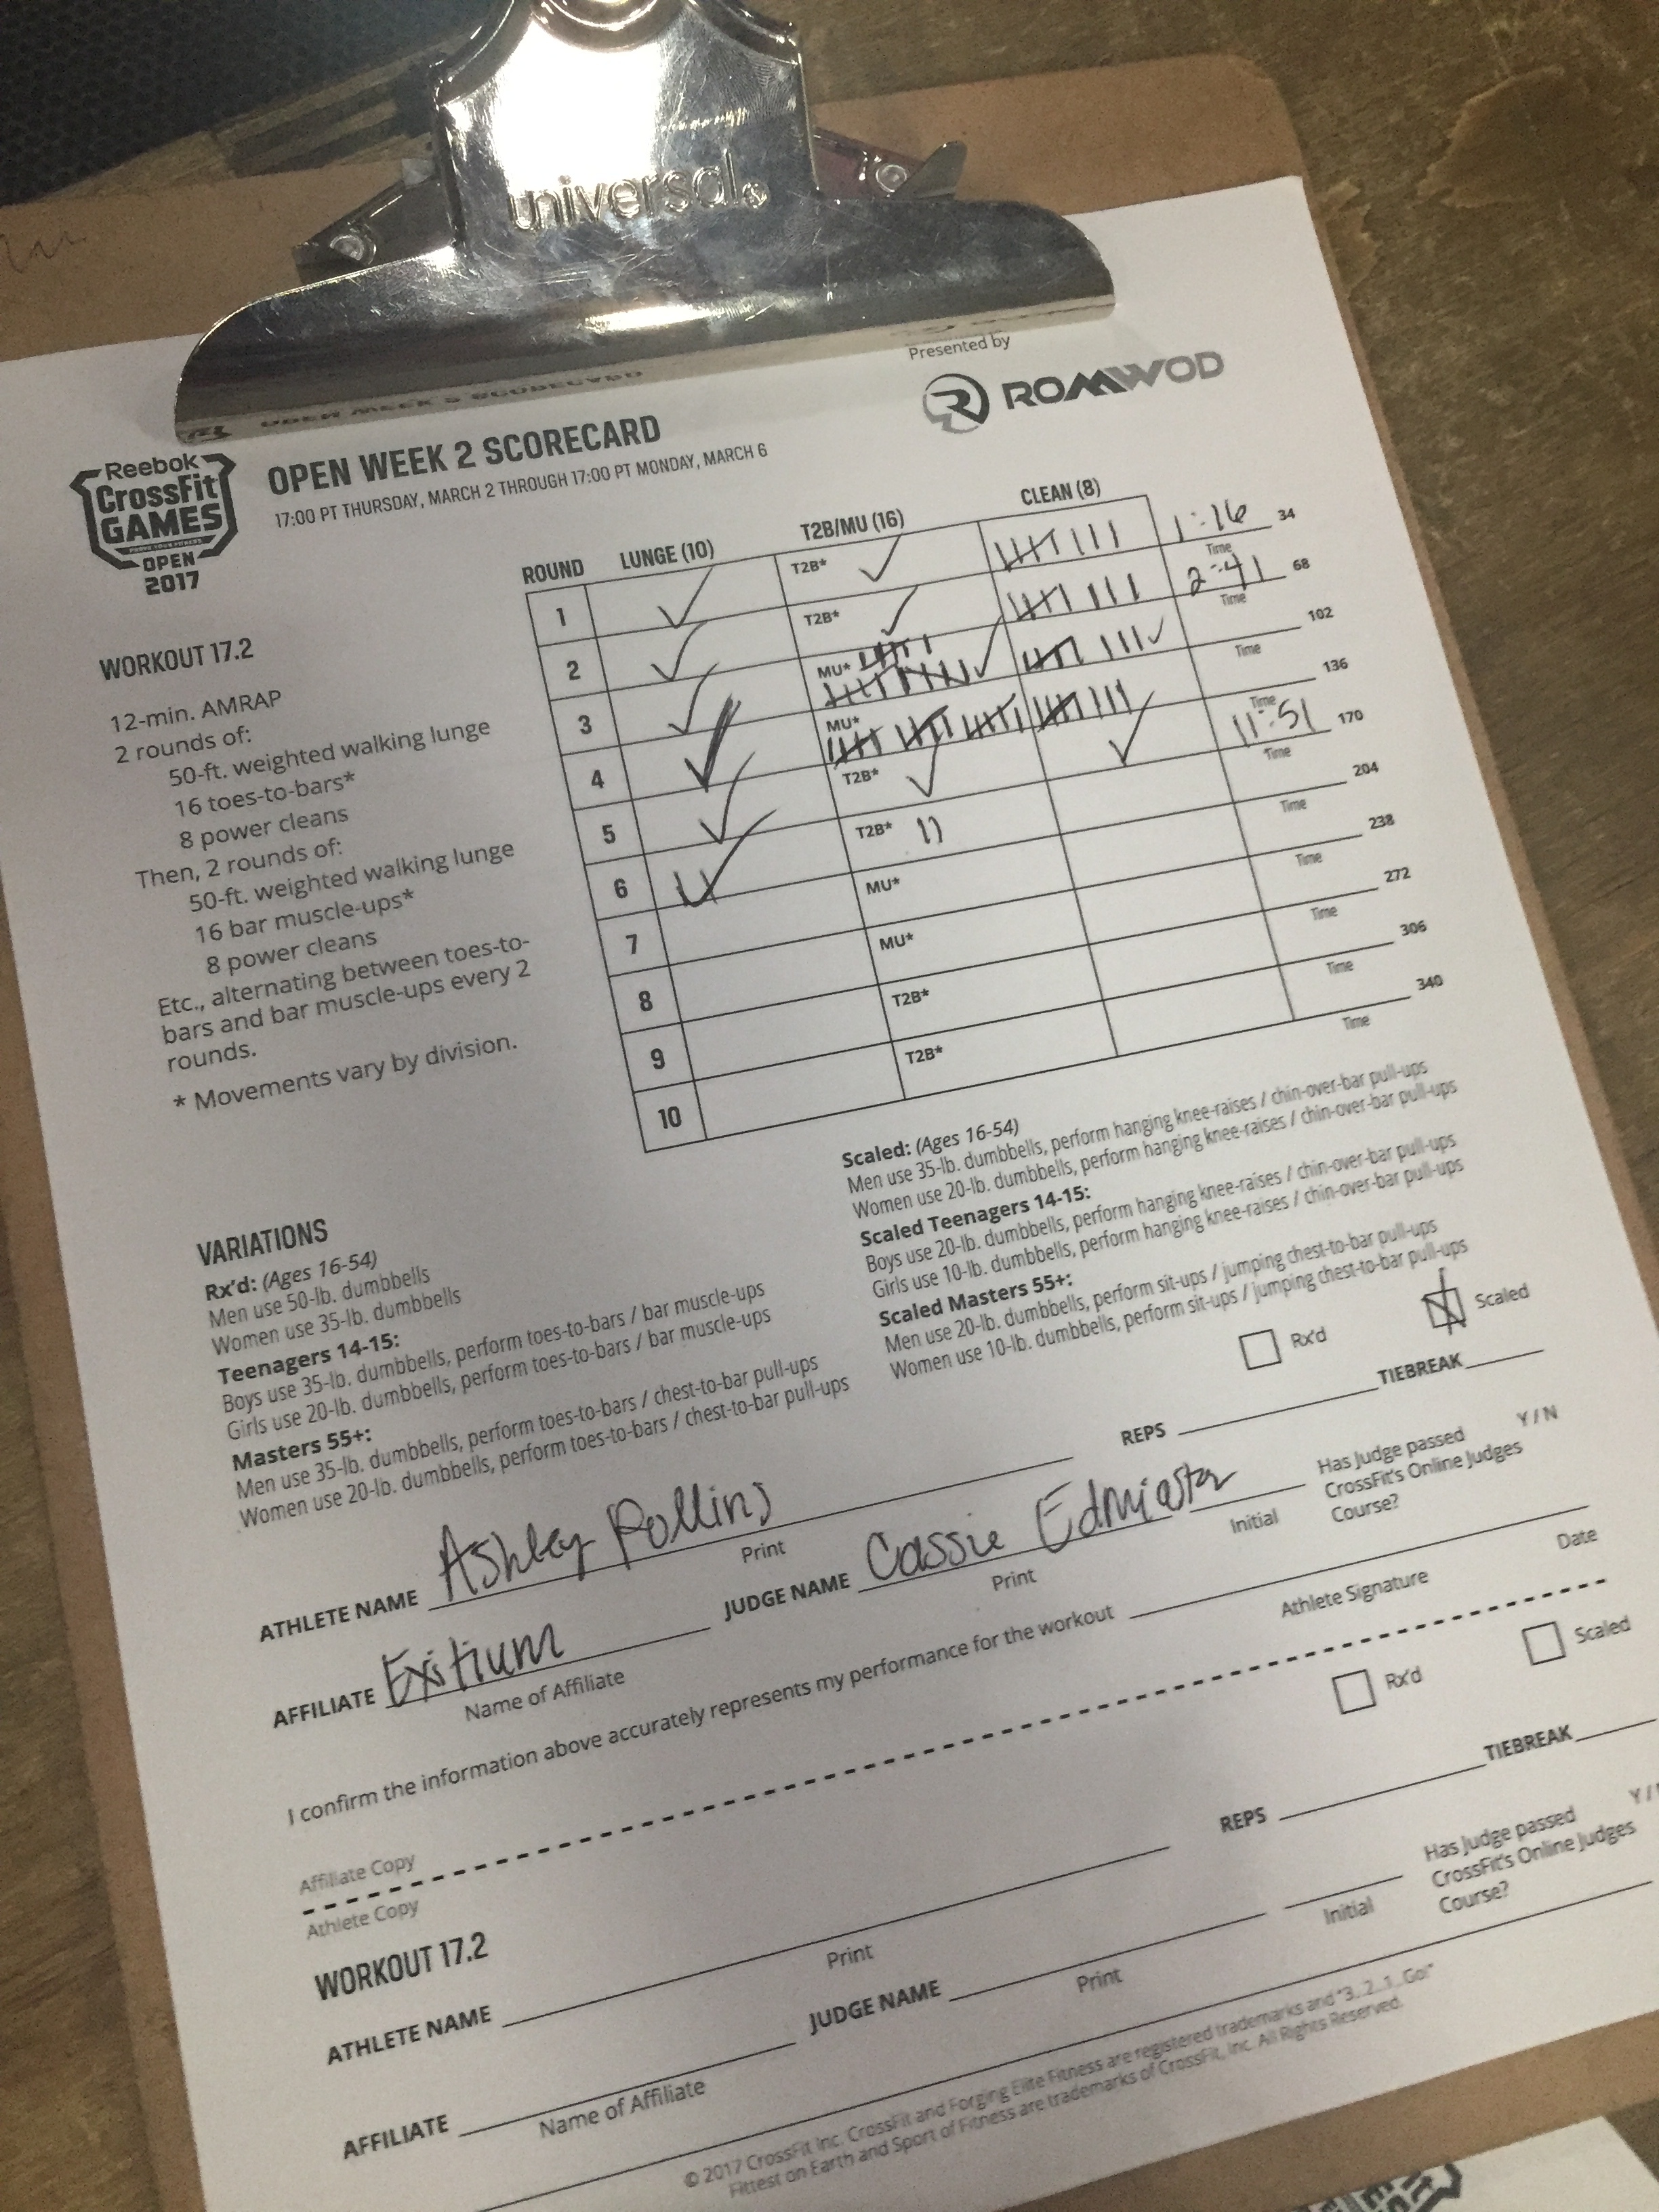 universal®
Presented by
ROMWOD
Reebok
CrossFit
GAMES
OPEN
2017
OPEN WEEK 2 SCORECARD
17:00 PT THURSDAY, MARCH 2 THROUGH 17:00 PT MONDAY, MARCH 6
WORKOUT 17.2
12-min. AMRAP
2 rounds of:
50-ft. weighted walking lunge
16 toes-to-bars*
8 power cleans
Then, 2 rounds of:
50-ft. weighted walking lunge
16 bar muscle-ups*
8 power cleans
Etc., alternating between toes-to-
bars and bar muscle-ups every 2
rounds.
* Movements vary by division.
ROUND LUNGE (10) T2B/MU (16) CLEAN (8)
1 T2B* 1:16 Time 34
2 T2B* 2:41 Time 68
3 MU* Time 102
4 MU* Time 136
5 T2B* 11:51 Time 170
6 T2B* 11 Time 204
7 MU* Time 238
8 MU* Time 272
9 T2B* Time 306
10 T2B* Time 340
VARIATIONS
Rx'd: (Ages 16-54)
Men use 50-lb. dumbbells
Women use 35-lb. dumbbells
Teenagers 14-15:
Boys use 35-lb. dumbbells, perform toes-to-bars / bar muscle-ups
Girls use 20-lb. dumbbells, perform toes-to-bars / bar muscle-ups
Masters 55+:
Men use 35-lb. dumbbells, perform toes-to-bars / chest-to-bar pull-ups
Women use 20-lb. dumbbells, perform toes-to-bars / chest-to-bar pull-ups
Scaled: (Ages 16-54)
Men use 35-lb. dumbbells, perform hanging knee-raises / chin-over-bar pull-ups
Women use 20-lb. dumbbells, perform hanging knee-raises / chin-over-bar pull-ups
Scaled Teenagers 14-15:
Boys use 20-lb. dumbbells, perform hanging knee-raises / chin-over-bar pull-ups
Girls use 10-lb. dumbbells, perform hanging knee-raises / chin-over-bar pull-ups
Scaled Masters 55+:
Men use 20-lb. dumbbells, perform sit-ups / jumping chest-to-bar pull-ups
Women use 10-lb. dumbbells, perform sit-ups / jumping chest-to-bar pull-ups
Rx'd Scaled
REPS TIEBREAK
ATHLETE NAME Ashley Pollins
Print
JUDGE NAME Cassie Edmiaston
Print
Initial
Has Judge passed Y / N
CrossFit's Online Judges
Course?
AFFILIATE Exitium
Name of Affiliate
I confirm the information above accurately represents my performance for the workout
Athlete Signature Date
Affiliate Copy
Athlete Copy
Rx'd Scaled
WORKOUT 17.2
REPS TIEBREAK
ATHLETE NAME
Print
JUDGE NAME
Print
Initial
Has Judge passed Y /
CrossFit's Online Judges
Course?
AFFILIATE
Name of Affiliate
© 2017 CrossFit Inc. CrossFit and Forging Elite Fitness are registered trademarks and "3...2...1...Go!"
Fittest on Earth and Sport of Fitness are trademarks of CrossFit, Inc. All Rights Reserved.